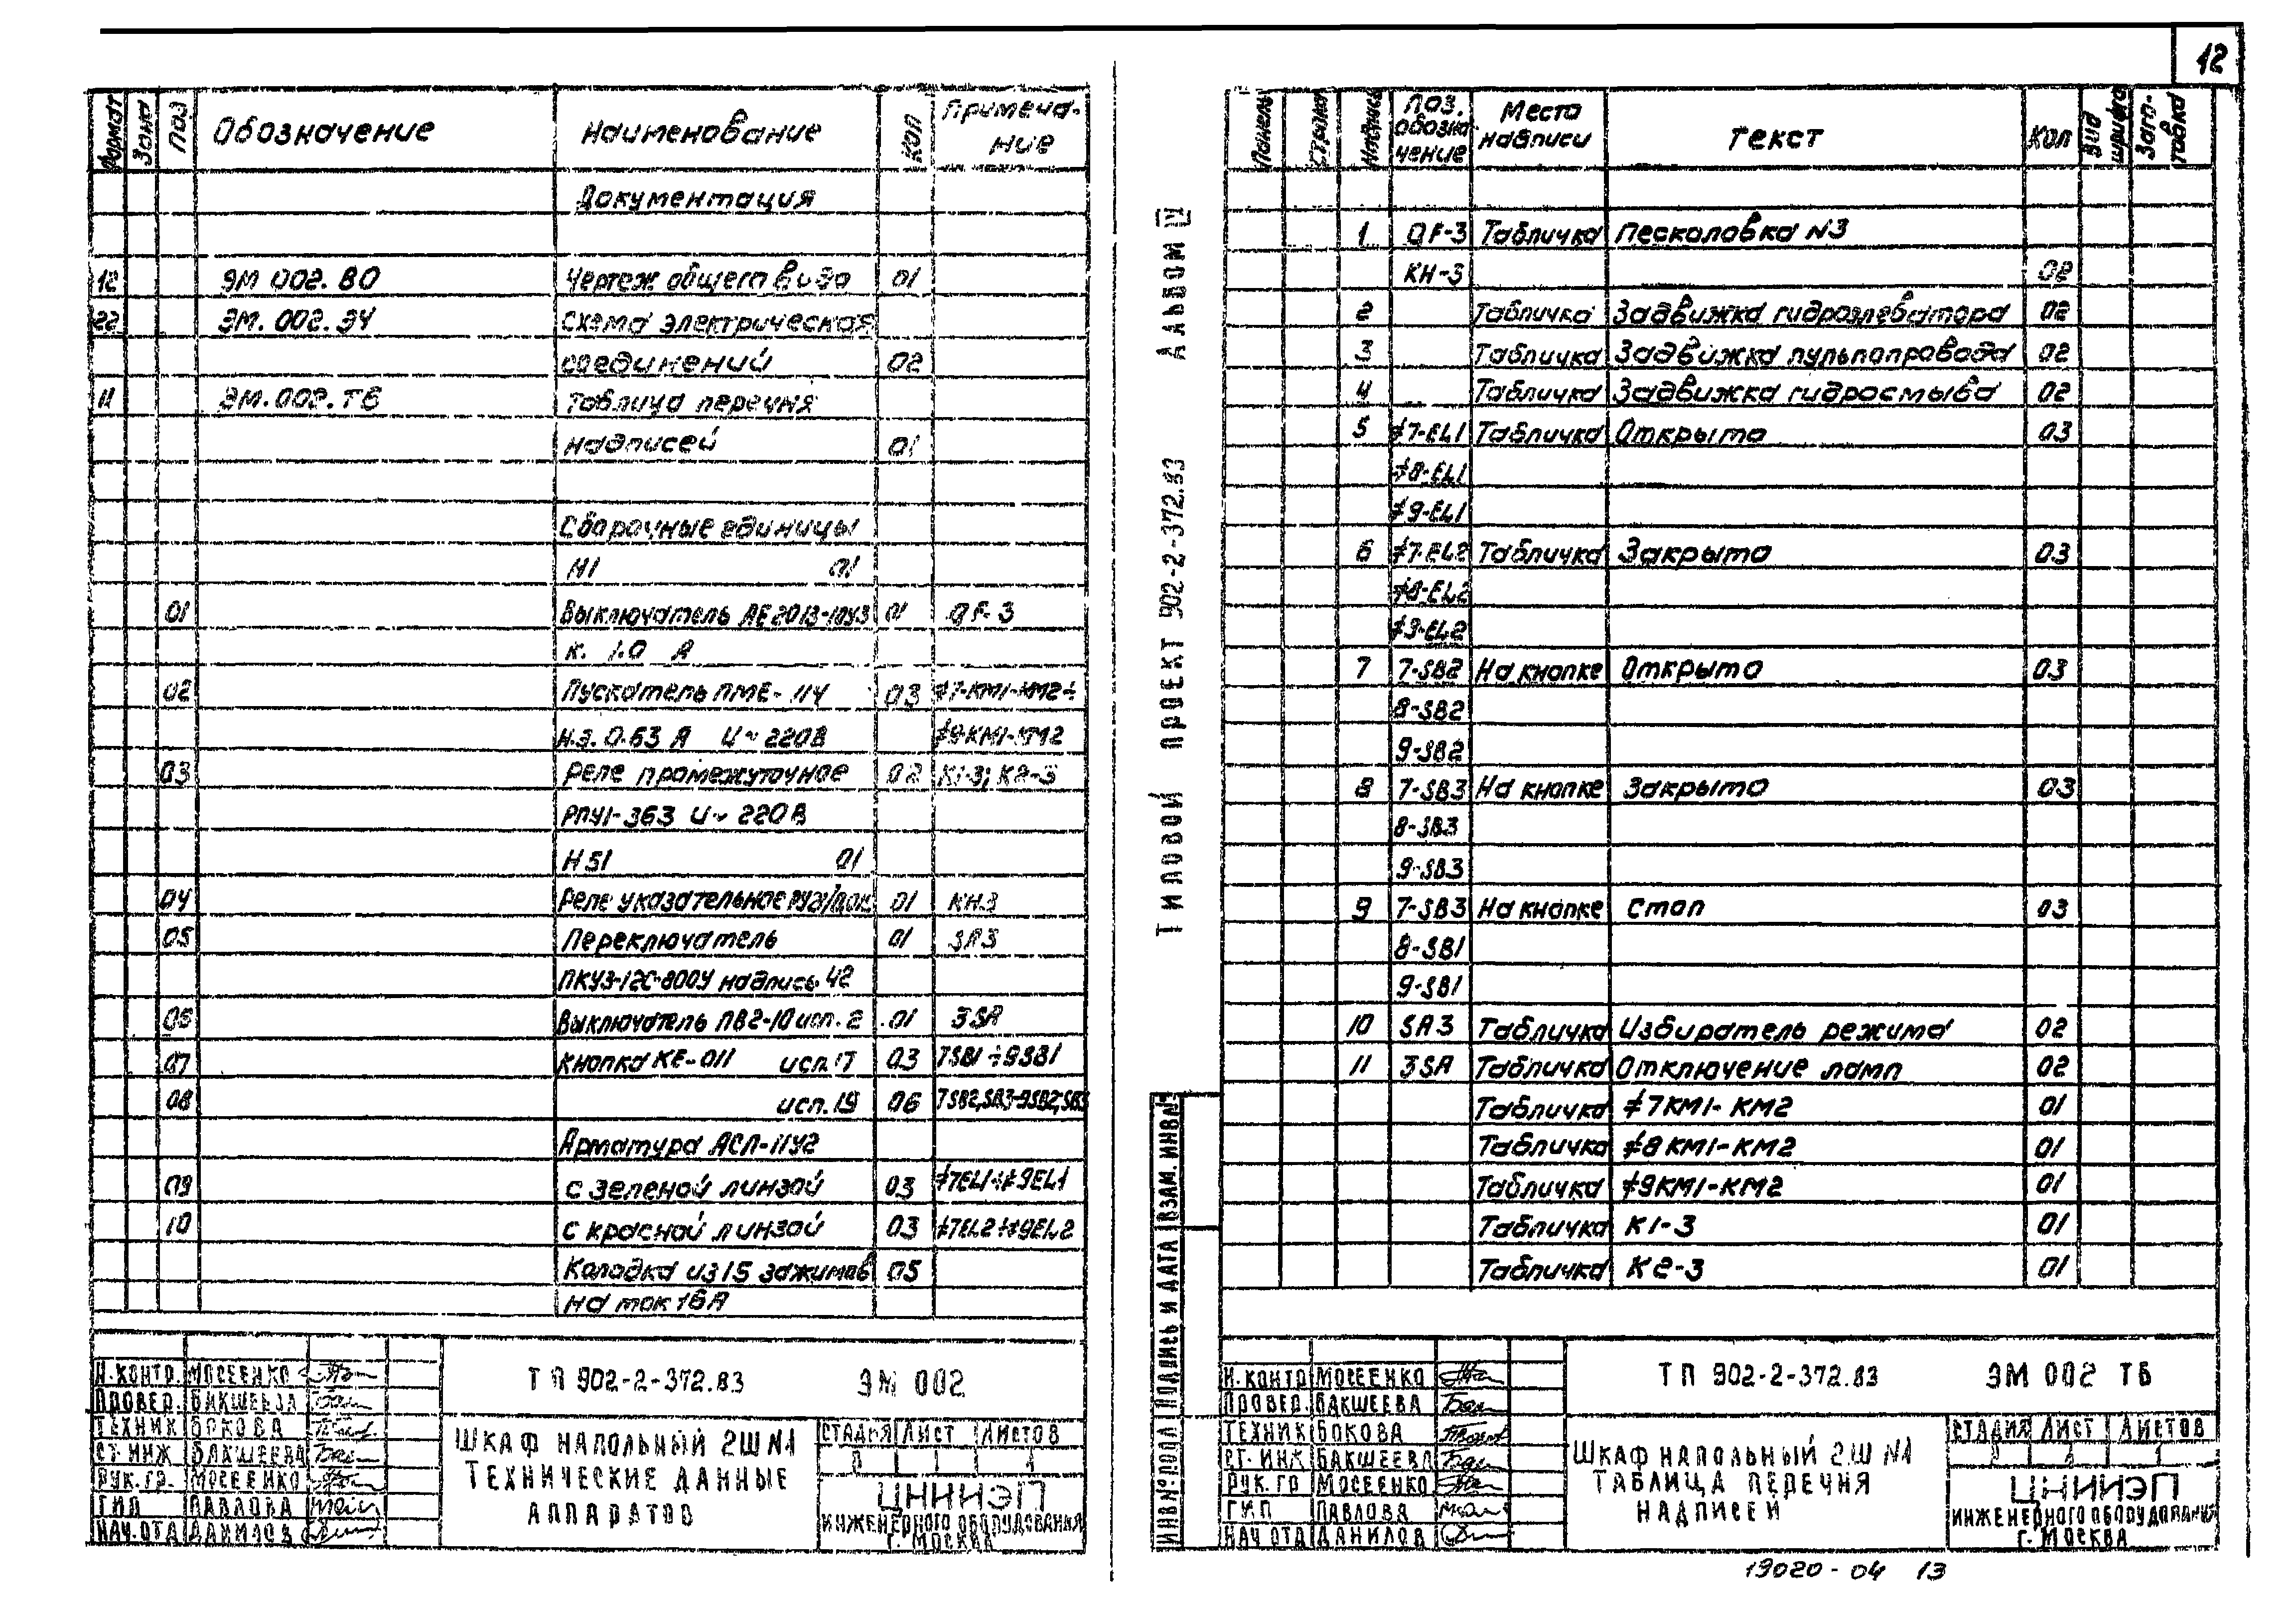 12
Формат Зона Поз Обозначение Наименование Кол Примеча-
ние
Документация
12 ЭМ 002. ВО Чертеж общего вида 01
22 ЭМ. 002. Э4 Схема электрическая
соединений 02
11 ЭМ.002. ТБ Таблица перечня
надписей 01
Сборочные единицы
Н1 01
01 Выключатель АЕ2013-10У3 01 QF-3
к. 1.0 А
02 Пускатель ПМЕ-114 03 ≠7-КМ1-КМ2÷
н.э. 0.63 А U~220В ≠9-КМ1-КМ2
03 Реле промежуточное 02 К1-3; К2-3
РПУ1-363 U~220В
Н51 01
04 Реле указательное 01 КН3
05 Переключатель 01 SA3
ПКУ3-12С-800У надпись 42
06 Выключатель ПВ2-10 исп. 2 01 3SA
07 Кнопка КЕ-011 исп.17 03 7SB1÷9SB1
08 исп.19 06 7SB2,SB3-9SB2,SB3
Арматура АСЛ-11У2
09 с зеленой линзой 03 ≠7EL1÷≠9EL1
10 с красной линзой 03 ≠7EL2÷≠9EL2
Колодка из 15 зажимов 05
на ток 16А
Н.контр. Мосеенко
Провер. Бакшеева
Техник Бокова
Ст.инж Бакшеева
Рук.гр. Мосеенко
ГИП Павлова
Нач.отд Данилов
ТП 902-2-372.83 ЭМ 002
Шкаф напольный 2Ш №1
Технические данные
аппаратов
Стадия Лист Листов
Р 1 1
ЦНИИЭП
инженерного оборудования
г. Москва
Типовой проект 902-2-372.83 Альбом IV
Панель Строка Надпись Поз. обозна-чение Места надписи Текст Кол Вид шрифта Заго-товка
1 QF-3 Табличка Песколовка N3
КН-3 02
2 Табличка Задвижка гидроэлеватора 02
3 Табличка Задвижка пульпопровода 02
4 Табличка Задвижка гидросмыва 02
5 ≠7-EL1 Табличка Открыто 03
≠8-EL1
≠9-EL1
6 ≠7-EL2 Табличка Закрыто 03
≠8-EL2
≠9-EL2
7 7-SB2 На кнопке Открыто 03
8-SB2
9-SB2
8 7-SB3 На кнопке Закрыто 03
8-SB3
9-SB3
9 7-SB3 На кнопке Стоп 03
8-SB1
9-SB1
10 SA3 Табличка Избиратель режима 02
11 3SA Табличка Отключение ламп 02
Табличка ≠7КМ1-КМ2 01
Табличка ≠8КМ1-КМ2 01
Табличка ≠9КМ1-КМ2 01
Табличка К1-3 01
Табличка К2-3 01
Инв№подл Подпись и дата Взам. инв№
Н.контр Мосеенко
Провер. Бакшеева
Техник Бокова
Ст. инж Бакшеева
Рук.гр Мосеенко
ГИП Павлова
Нач отд Данилов
ТП 902-2-372.83 ЭМ 002 ТБ
Шкаф напольный 2Ш №1
Таблица перечня
надписей
Стадия Лист Листов
Р 1 1
ЦНИИЭП
инженерного оборудования
г. Москва
19020-04 13